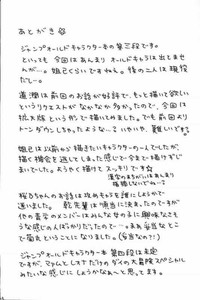 あとがき
ジャンプオールドキャラクター本の第三段です。
といっても今回はあんまりオールドキャラは出てませ
んが…。妲己くらいですねん。後の二人は現役
だしー。
蓮濤は前回のお話が好評で、もっと描いて欲しい
というリクエストがなかなか多かったので、今回は
拡大版という形で描いてみました。でも前回より
トーンダウンしちゃったような…？いやいや、難しいです。
妲己は以前から描きたいキャラクターの一人でしたが、
描く機会を逃してしまった感じで今まで描けずじ
まいでした。ようやく描けてスッキリです
漢字のまちがいはあんまり
指摘しないでねー？
桜乃ちゃんのお話は攻めキャラを誰にしようかで
迷いました。 乾先輩は順当に決まったのですが
他の青学のメンバーはみんな女の子に興味なさそ
うな感じの人ばかりだったので…。まあ妥当なとこ
で菊丸ということになりました。(妥当なの？)
ジャンプオールドキャラクター本 第四段は未定
ですが、マァムとレオナだけのダイの大冒険スペシャル
みたいな感じにしようかなぁーと思ってます。